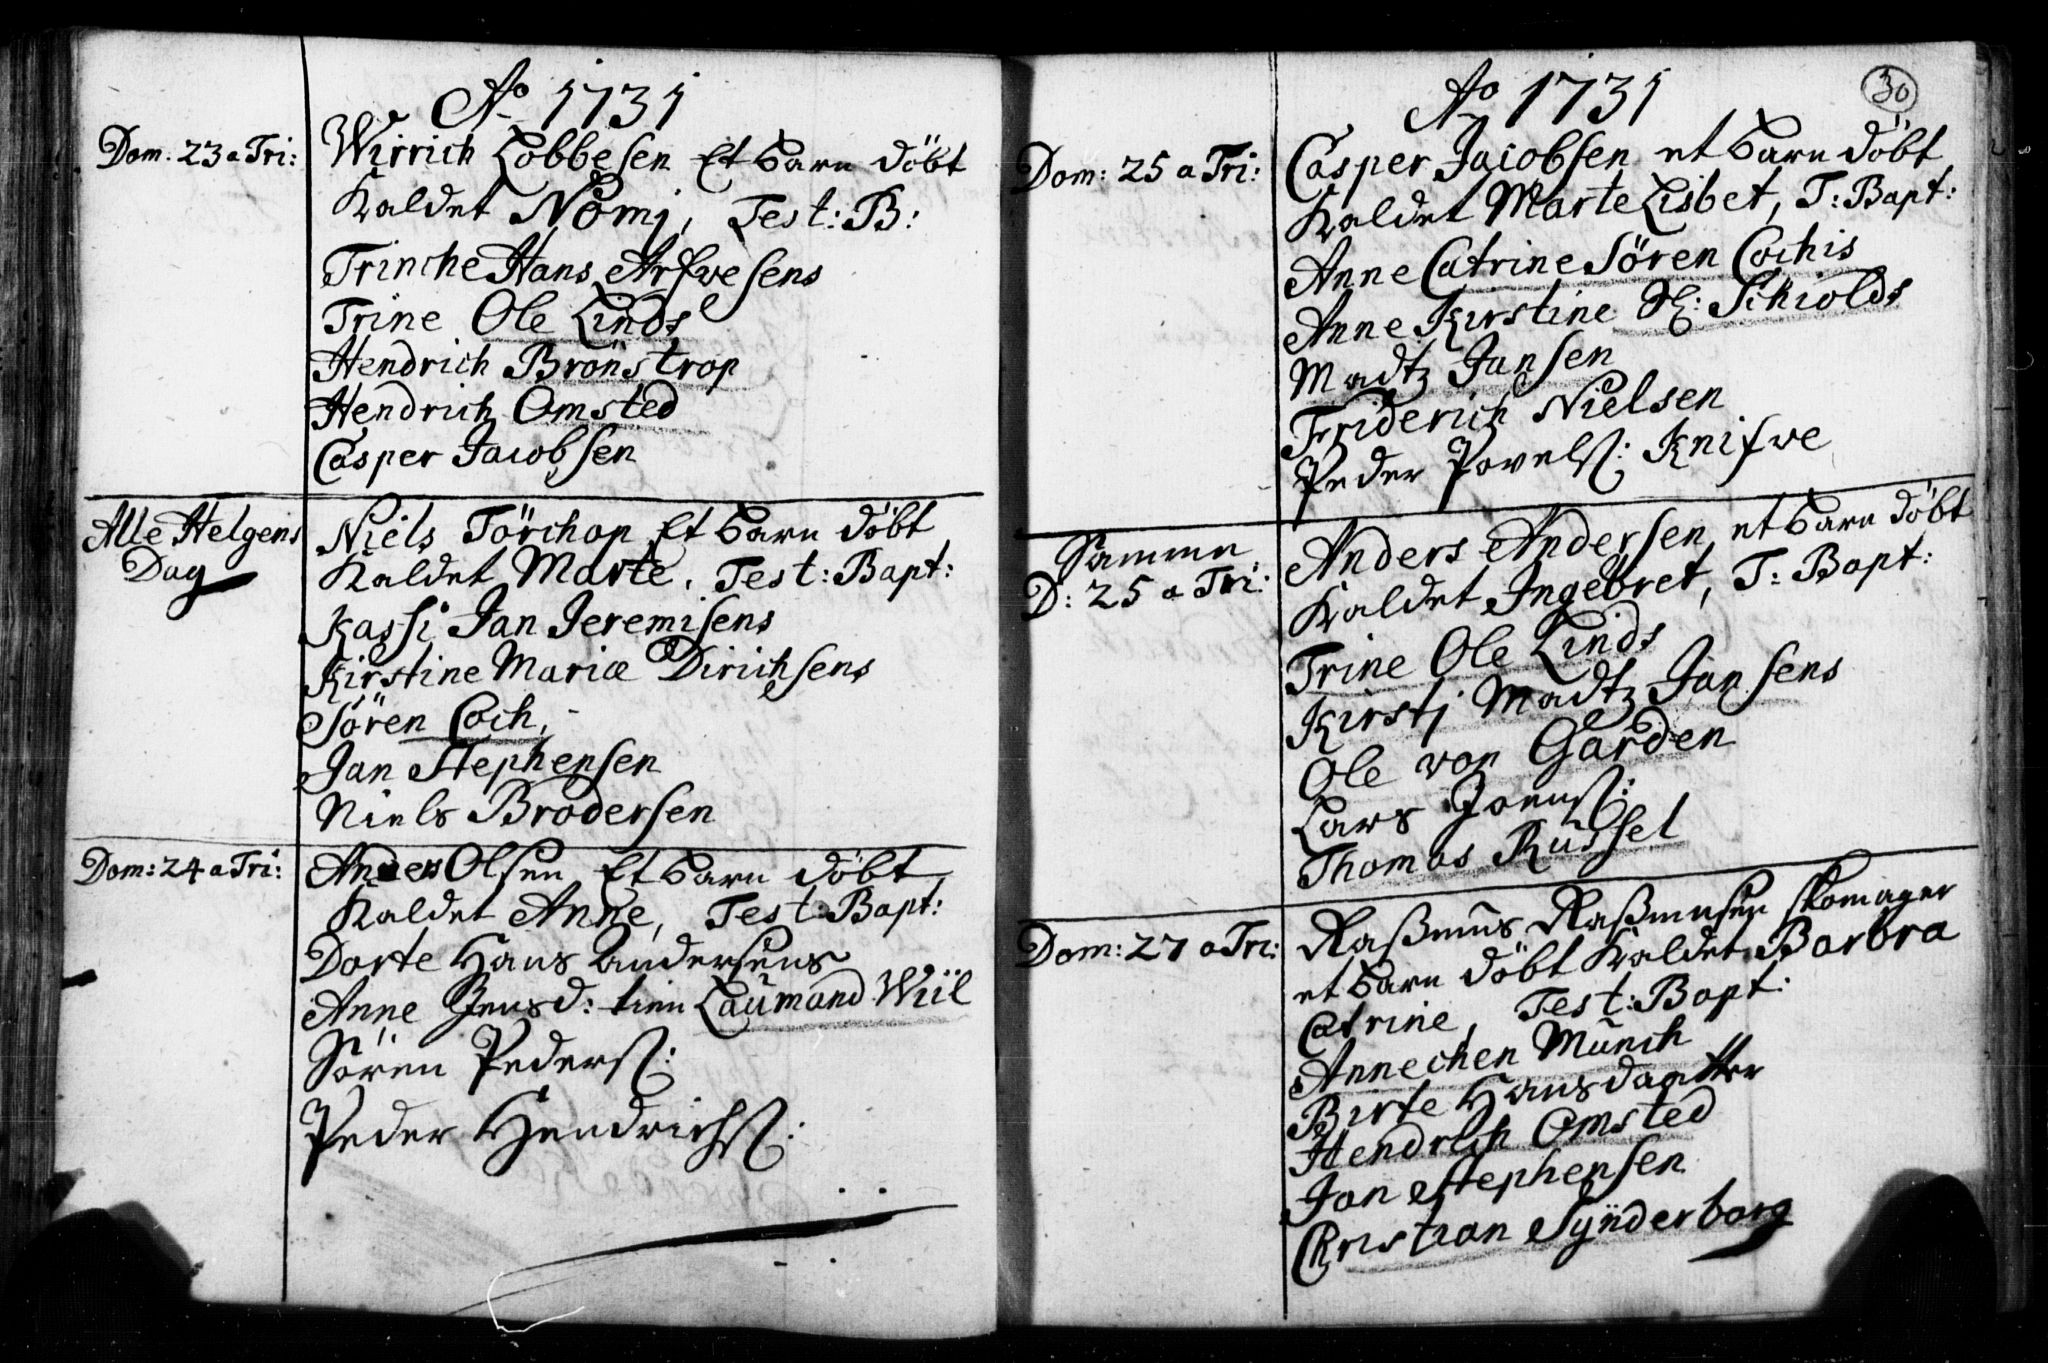 Ao 1731
Dom: 23 a Tri: Wirrich Lobbesen Et barn döbt
Kaldet Nömj, Test: B:
Trinche Hans Arfvesens
Trine Ole Linds
Hendrich Brönstrop
Hendrich Omsted
Casper Jacobsen
Alle Helgens Niels Törchop Et barn döbt
Dag Kaldet Marte, Test: Bapt:
Kassi Jan Jeremisens
Kirstine Mariæ Dirichsens
Sören Coch,
Jan Stephensen
Niels Brodersen
Dom: 24 a Tri: Anders Olsen Et barn döbt
Kaldet Anne, Test: Bapt:
Dorte Hans Andersens
Anne Jensd: tien Laumand Wiil
Sören Peders:
Peder Hendrichs:
30
Ao 1731
Dom: 25 a Tri: Casper Jacobsen et barn döbt
Kaldet Marte Lisbet, T: Bapt:
Anne Catrine Sören Cochis
Anne Kirstine Sl: Schiolds
Madtz Jansen
Friderich Nielsen
Peder Povels: Knifve
Samme Anders Andersen et barn döbt
D: 25 a Tri: Kaldet Ingebret, T: Bapt:
Trine Ole Linds
Kirstj Madtz Jansens
Ole von Garden
Lars Joens:
Thomas Russel
Dom: 27 a Tri: Raßmus Raßmusen skomager
et barn döbt Kaldet Barbra
Catrine, Test: Bapt:
Annechen Munch
Birte Hansdaatter
Hendrich Omsted
Jan Stephensen
Christian Synderborg